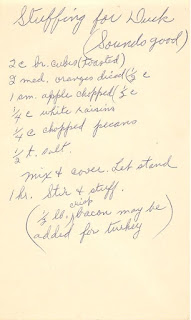 Stuffing for Duck
(Sounds good)
2 c br. cubes (toasted)
3 med. oranges diced (1/2 c
1 sm. apple chopped (1/2 c
1/4 c white raisins
1/4 c chopped pecans
1/2 t. salt.
mix & cover. Let stand
1 hr. Stir & stuff.
crisp
(1/2 lb. bacon may be
added for turkey)